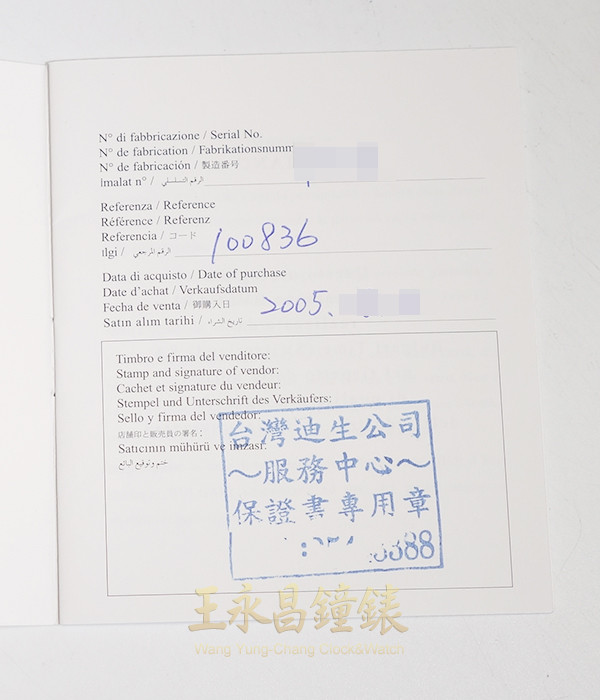 N° di fabbricazione / Serial No.
N° de fabrication / Fabrikationsnumm
N° de fabricación / 製造番号
Imalat n° / الرقم التسلسلي
Referenza / Reference
Référence / Referenz
Referencia / コード
Ilgi / الرقم المرجعي
100836
Data di acquisto / Date of purchase
Date d'achat / Verkaufsdatum
Fecha de venta / 御購入日
Satın alım tarihi / تاريخ الشراء
2005.
Timbro e firma del venditore:
Stamp and signature of vendor:
Cachet et signature du vendeur:
Stempel und Unterschrift des Verkäufers:
Sello y firma del vendedor:
店舗印と販売員の署名:
Satıcının mühürü ve imzası:
ختم وتوقيع البائع
台灣迪生公司
～服務中心～
保證書專用章
王永昌鐘錶
Wang Yung-Chang Clock&Watch